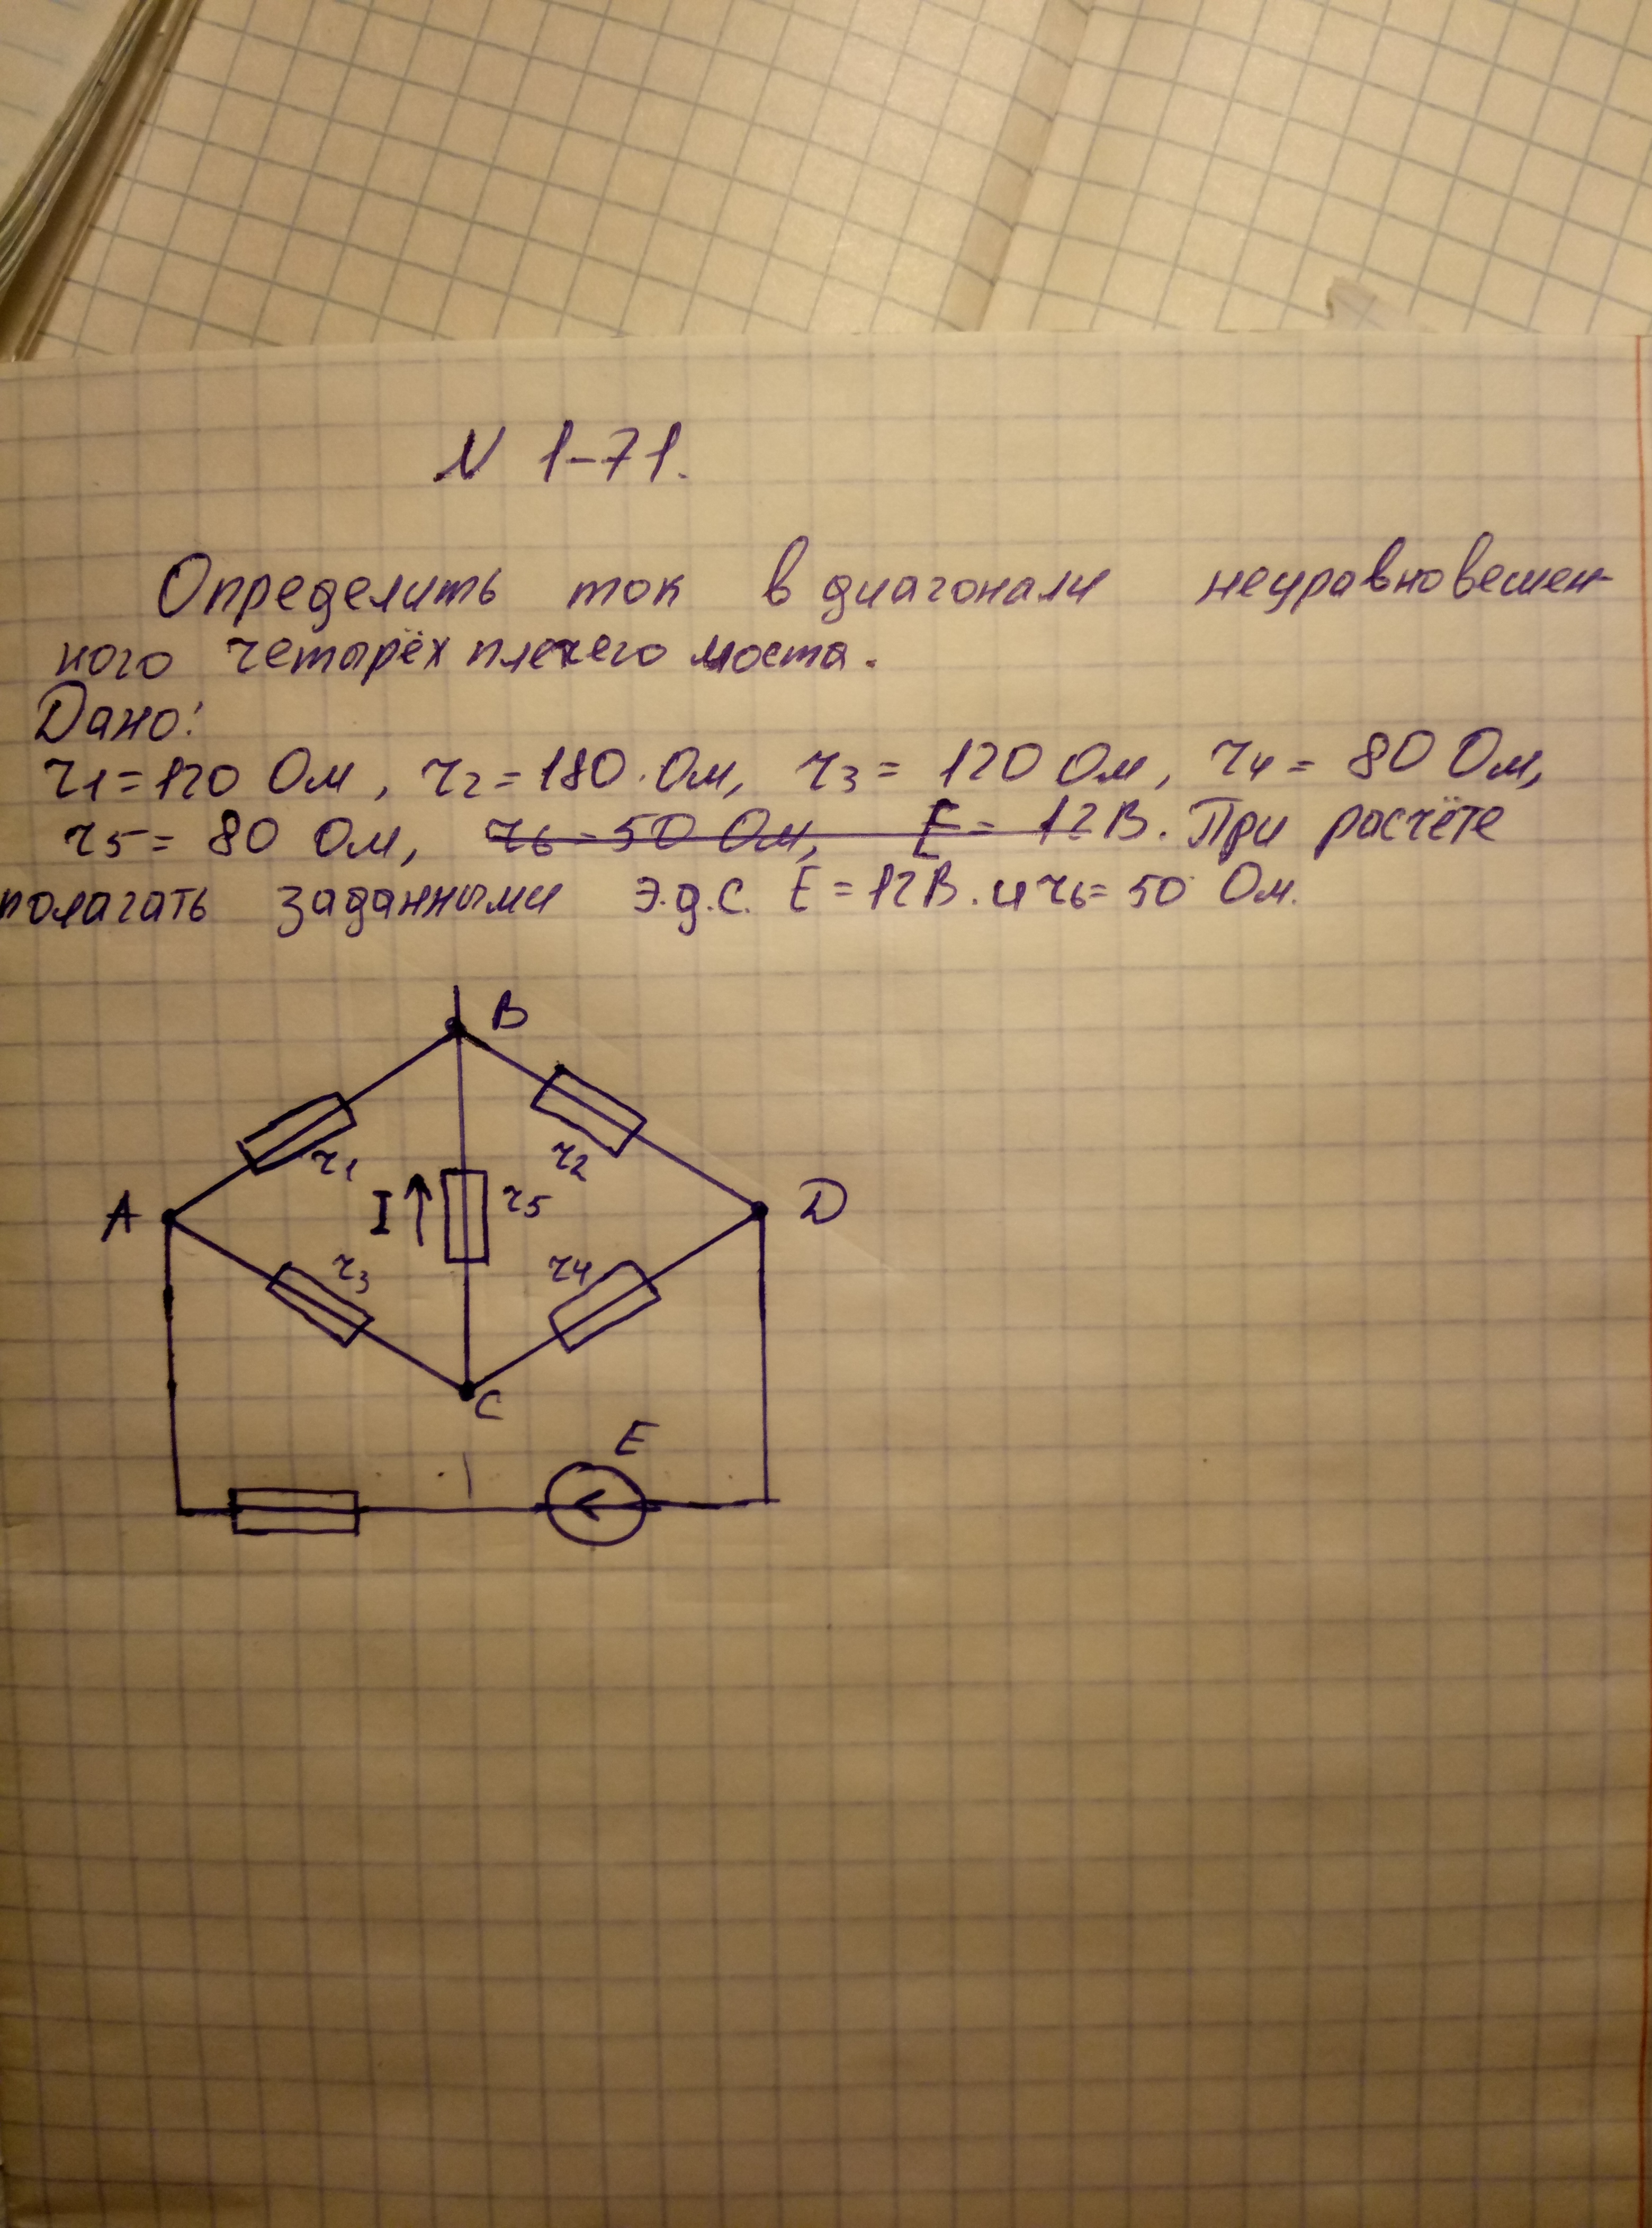 N 1-71.
Определить ток в диагонали неуравновешен-
ного четырёх плечего моста.
Дано:
r1=120 Ом, r2=180 Ом, r3= 120 Ом, r4= 80 Ом,
r5= 80 Ом, r6=50 Ом, E= 12В. При расчёте
полагать заданными э.д.с. E=12В. и r6= 50 Ом.
B
r1
r2
A
I
r5
D
r3
r4
C
E